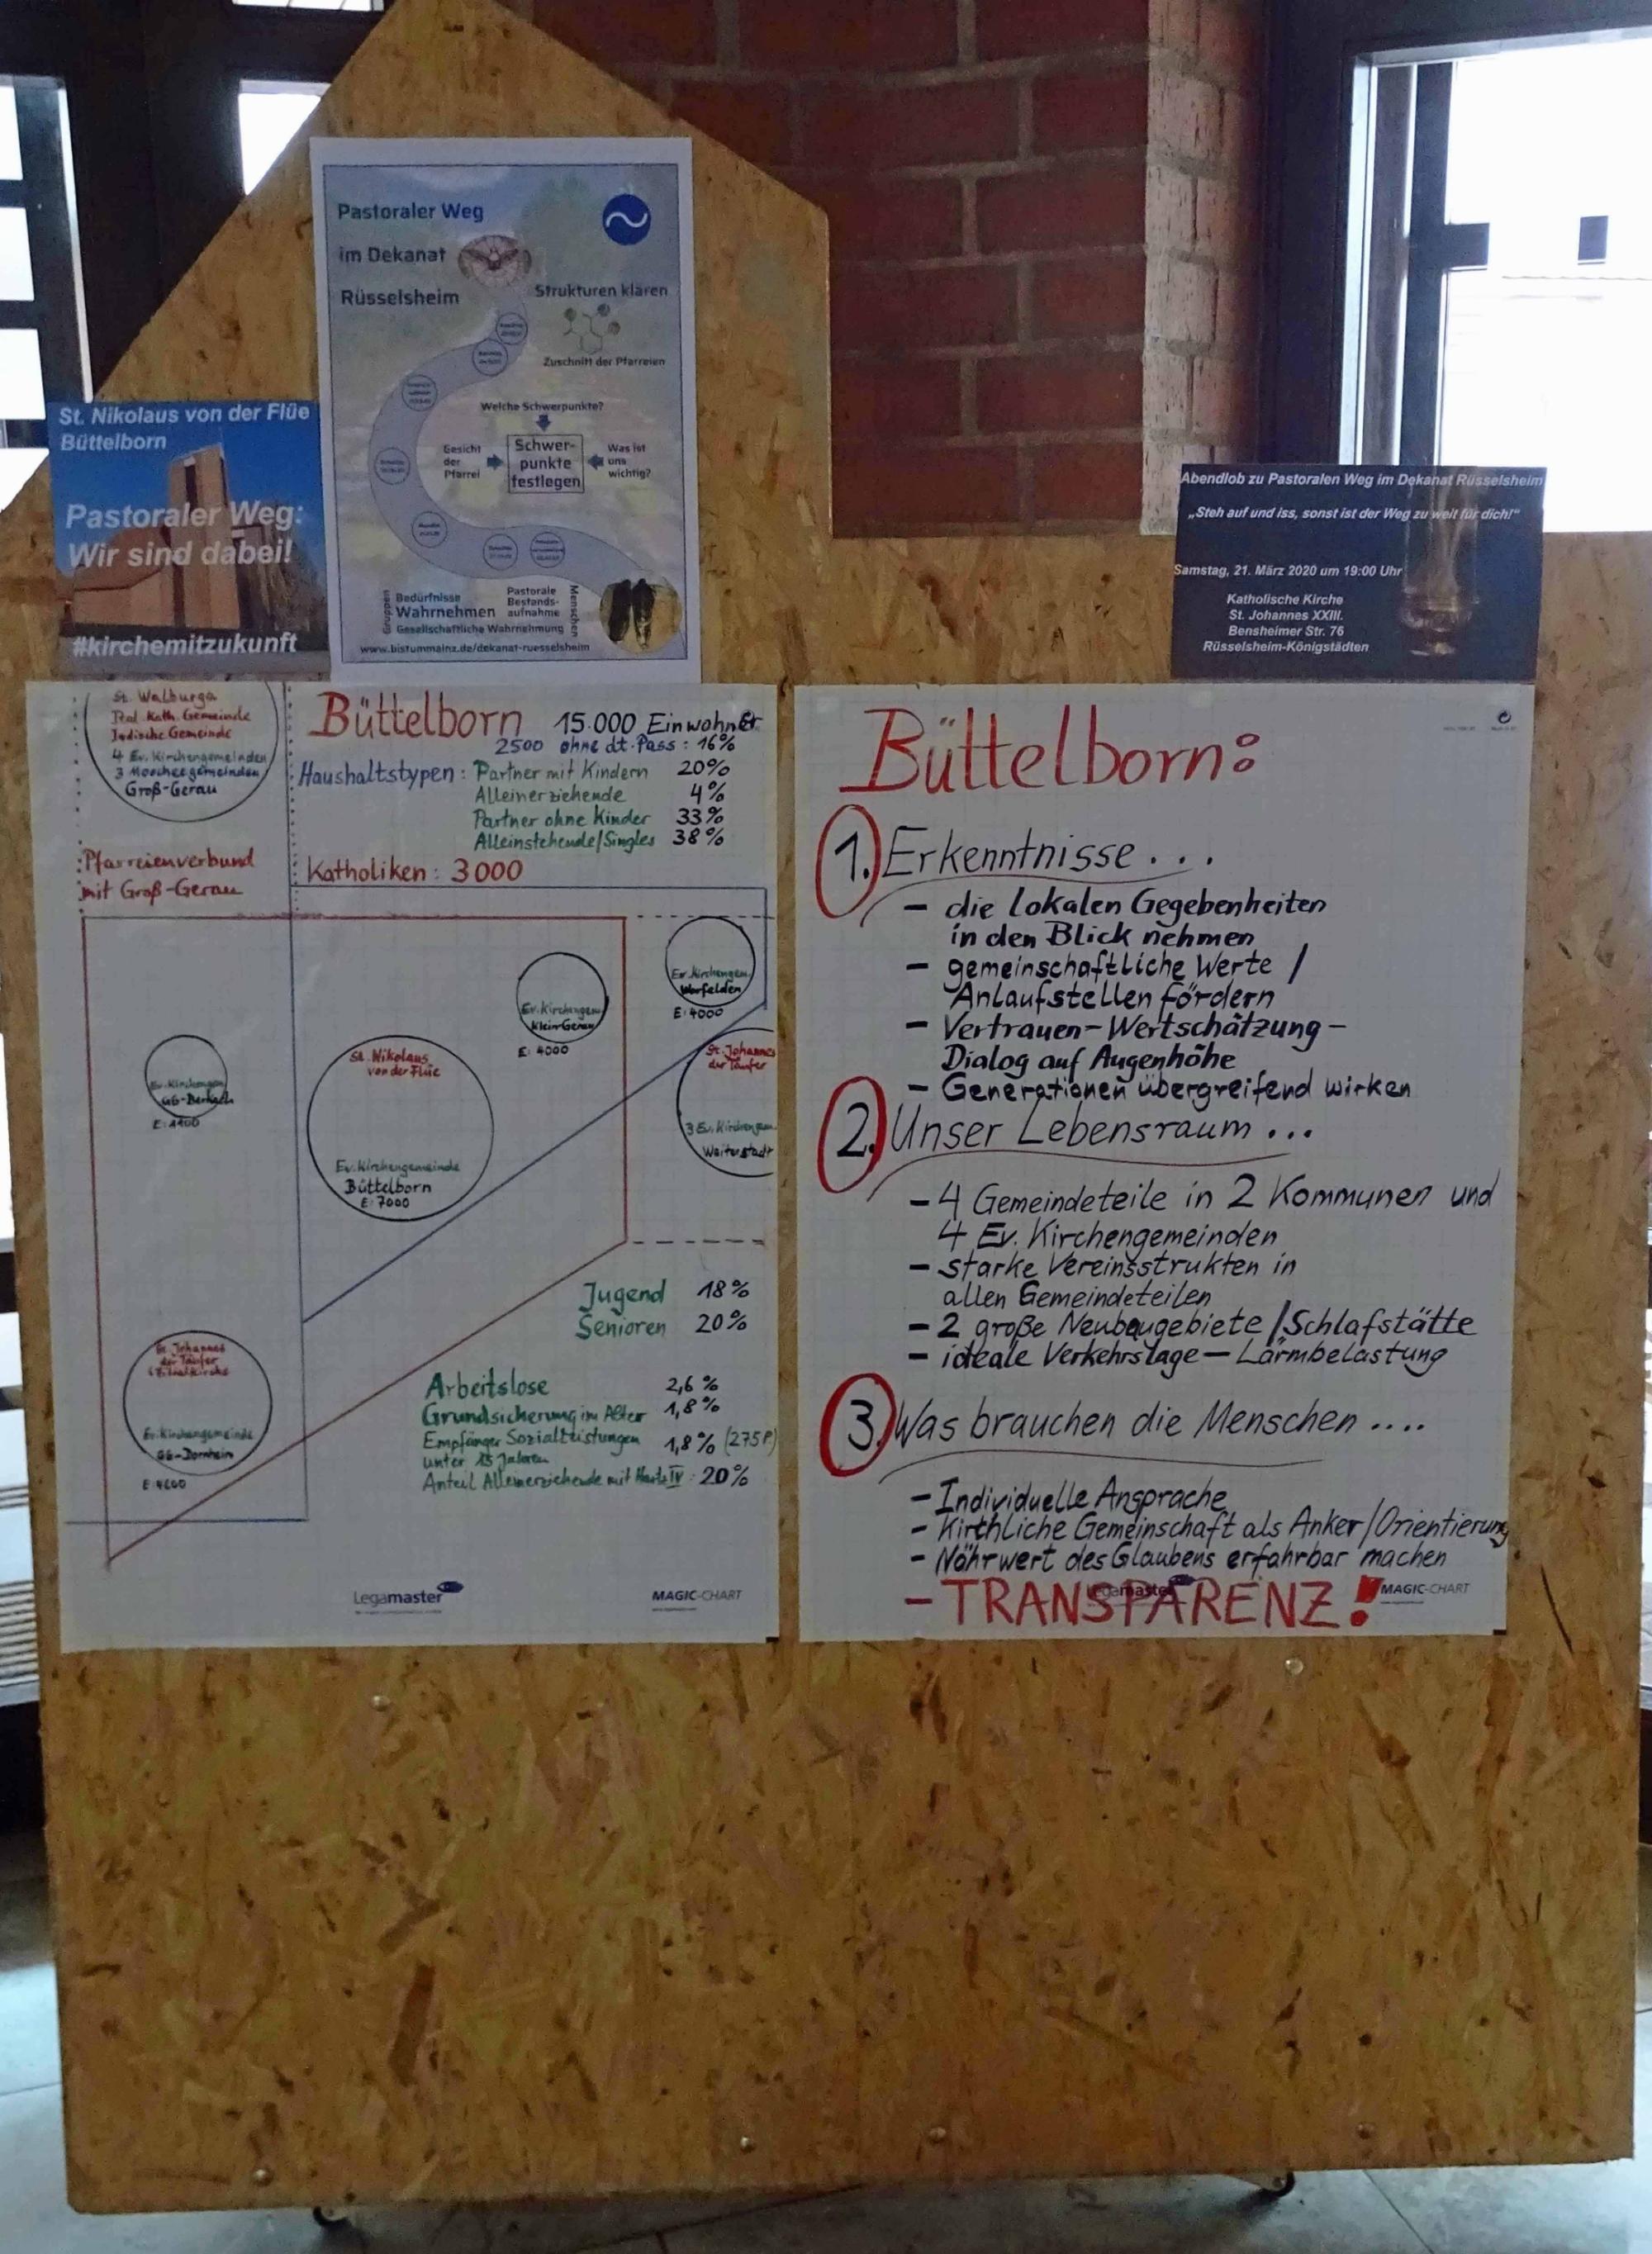 Pastoraler Weg
im Dekanat
Rüsselsheim
Strukturen klären
Zuschnitt der Pfarreien
Welche Schwerpunkte?
Gesicht
der
Pfarrei
Schwer-
punkte
festlegen
Was ist
uns
wichtig?
Gruppen
Bedürfnisse
Wahrnehmen
Pastorale
Bestands-
aufnahme
Menschen
Gesellschaftliche Wahrnehmung
www.bistummainz.de/dekanat-ruesselsheim
St. Nikolaus von der Flüe
Büttelborn
Pastoraler Weg:
Wir sind dabei!
#kirchemitzukunft
Abendlob zu Pastoralen Weg im Dekanat Rüsselsheim
„Steh auf und iss, sonst ist der Weg zu weit für dich!"
Samstag, 21. März 2020 um 19:00 Uhr
Katholische Kirche
St. Johannes XXIII.
Bensheimer Str. 76
Rüsselsheim-Königstädten
St. Walburga
Ital. Kath. Gemeinde
Jüdische Gemeinde
4 Ev. Kirchengemeinden
3 Moscheegemeinden
Groß-Gerau
Pfarreienverbund
mit Groß-Gerau
Büttelborn 15.000 Einwohner
2500 ohne dt. Pass: 16%
Haushaltstypen: Partner mit Kindern 20%
Alleinerziehende 4%
Partner ohne Kinder 33%
Alleinstehende/Singles 38%
Katholiken: 3000
Ev. Kirchengem.
Worfelden
E: 4000
Ev. Kirchengem.
Klein-Gerau
E: 4000
Ev. Kirchengem.
GG-Berkach
St. Nikolaus
von der Flüe
Ev. Kirchengemeinde
Büttelborn
E: 7000
St. Johannes
der Täufer
3 Ev. Kirchengem.
Weiterstadt
St. Johannes
der Täufer
Filialkirche
Ev. Kirchengemeinde
GG-Dornheim
Jugend 18%
Senioren 20%
Arbeitslose 2,6%
Grundsicherung im Alter 1,8%
Empfänger Sozialleistungen 1,8% (275 P.)
unter 15 Jahren
Anteil Alleinerziehende mit Hartz IV: 20%
Legamaster
MAGIC-CHART
Büttelborn:
1. Erkenntnisse...
- die lokalen Gegebenheiten
in den Blick nehmen
- gemeinschaftliche Werte /
Anlaufstellen fördern
- Vertrauen-Wertschätzung-
Dialog auf Augenhöhe
- Generationen übergreifend wirken
2. Unser Lebensraum...
- 4 Gemeindeteile in 2 Kommunen und
4 Ev. Kirchengemeinden
- starke Vereinsstrukten in
allen Gemeindeteilen
- 2 große Neubaugebiete/Schlafstätte
- ideale Verkehrslage - Lärmbelastung
3. Was brauchen die Menschen....
- Individuelle Ansprache
- Kirchliche Gemeinschaft als Anker/Orientierung
- Nährwert des Glaubens erfahrbar machen
- TRANSPARENZ!
Legamaster
MAGIC-CHART